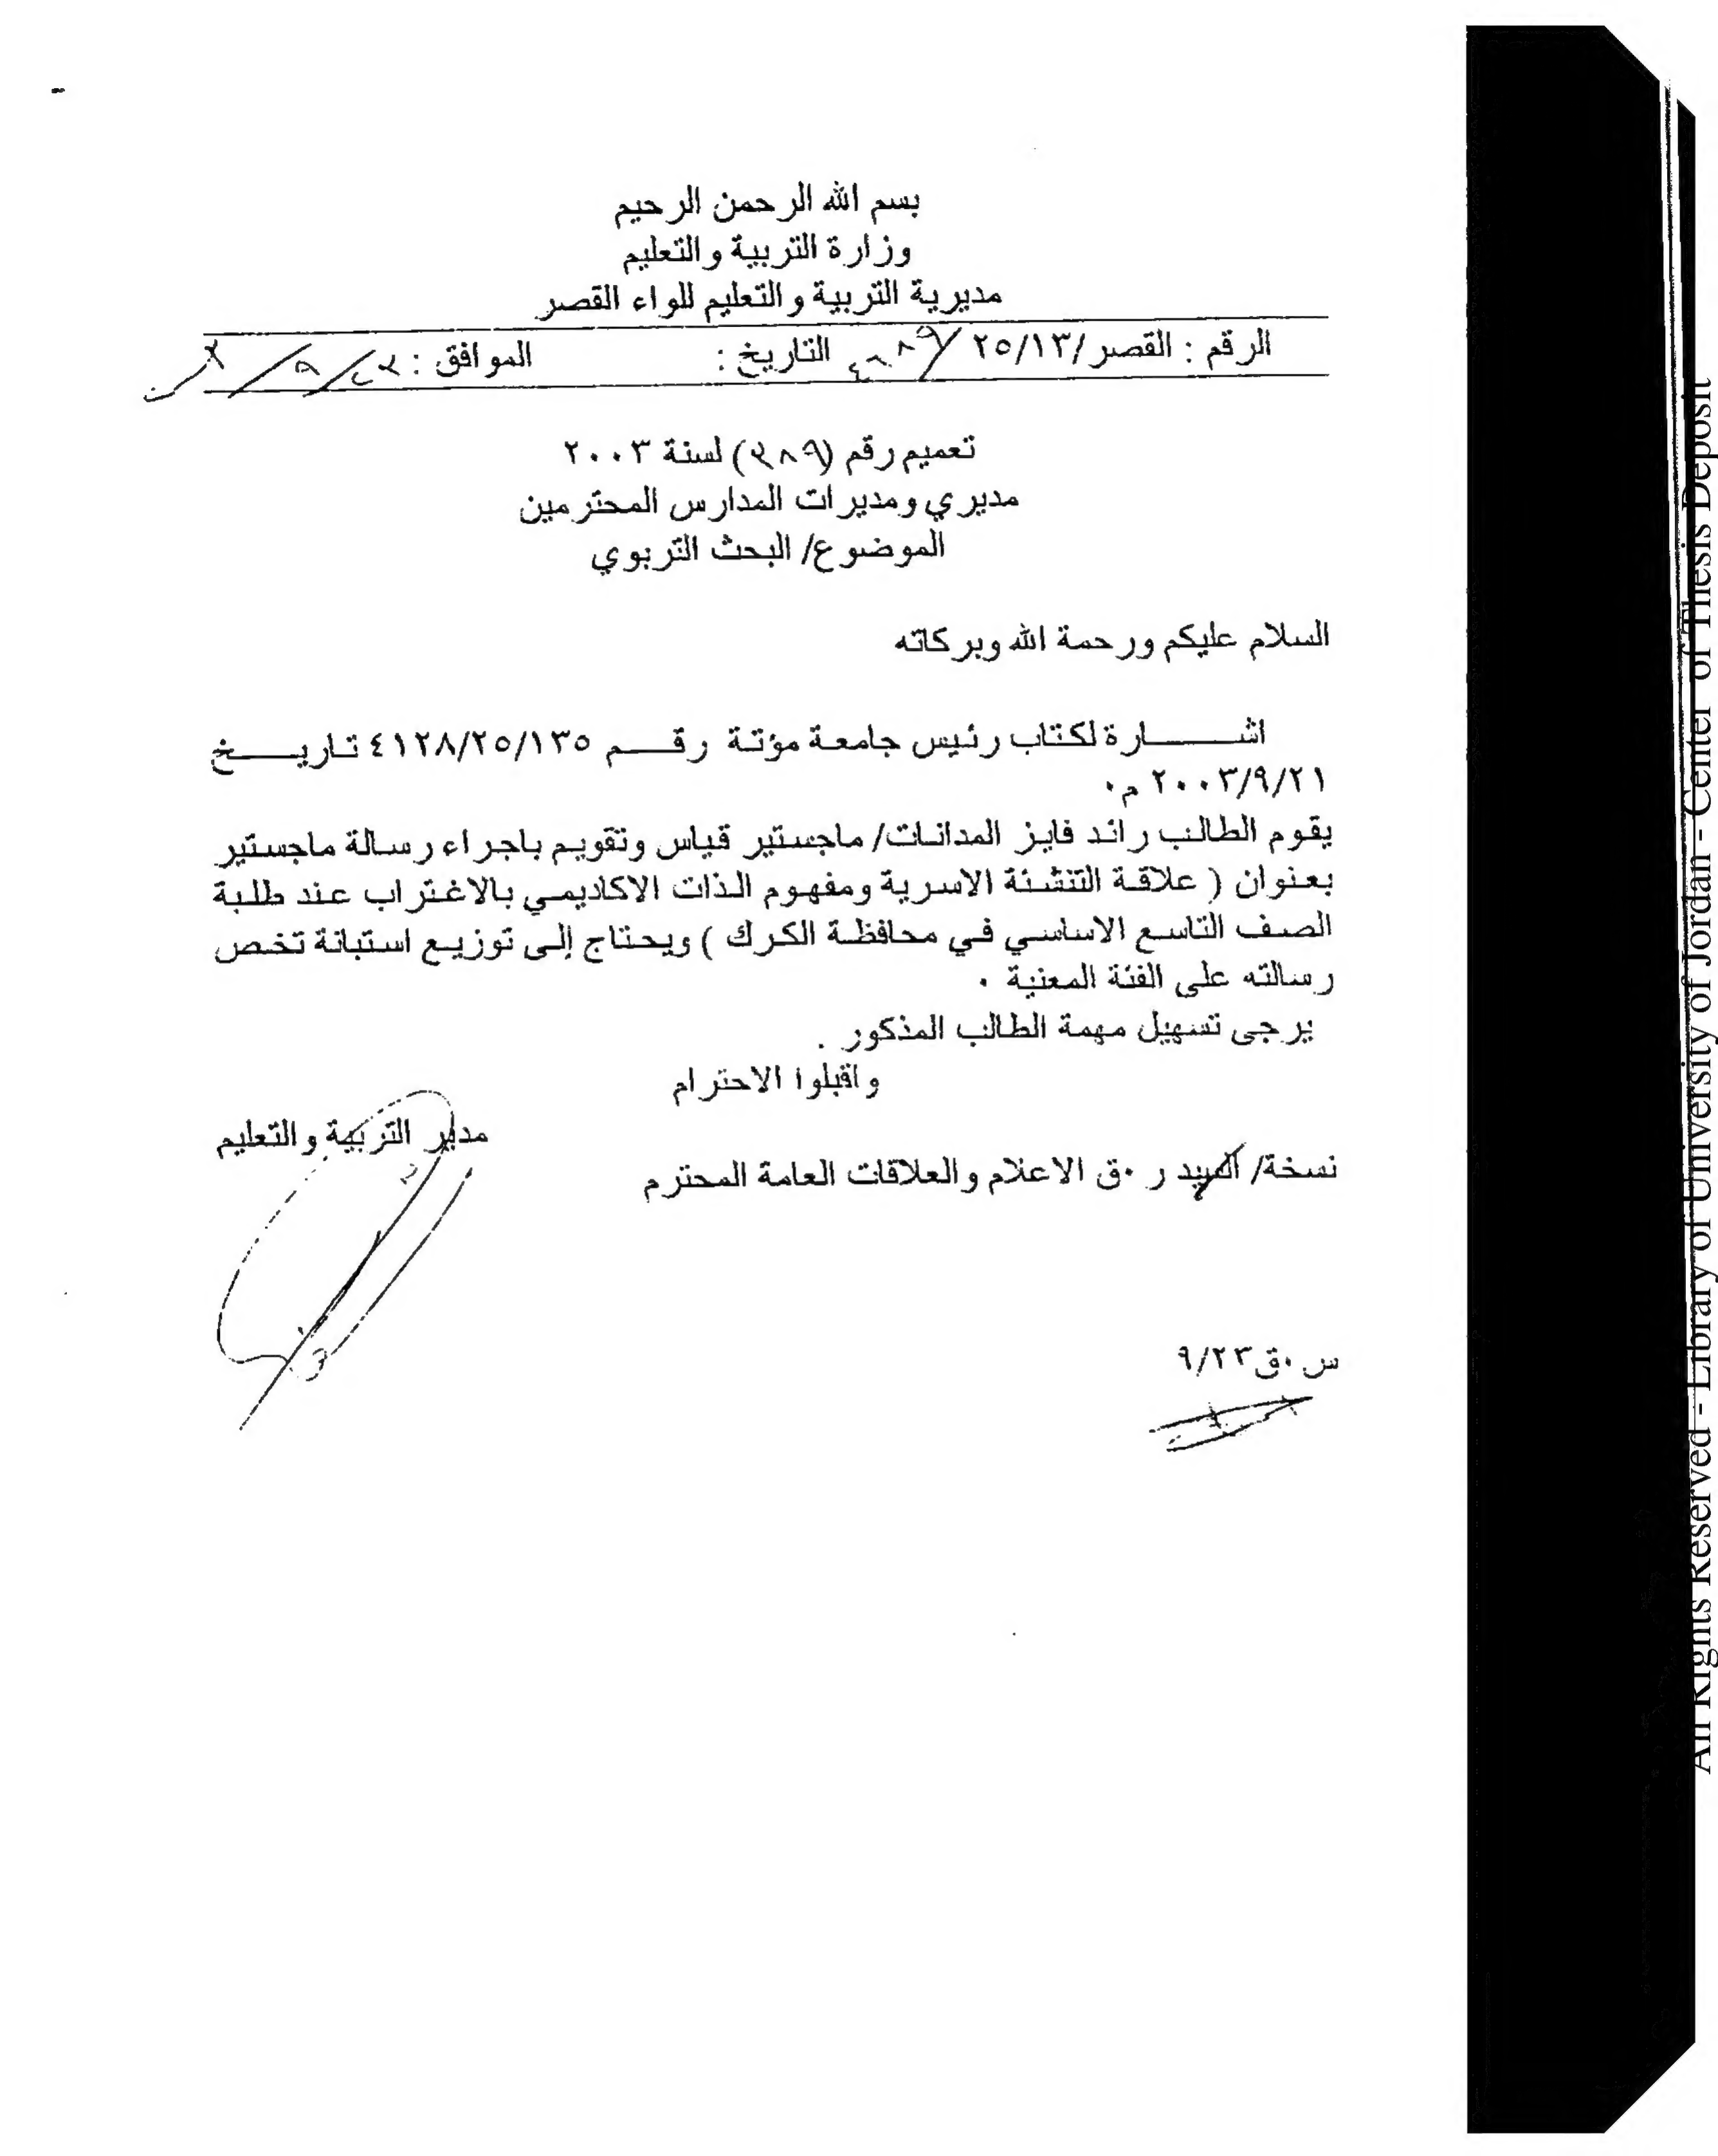 بسم الله الرحمن الرحيم
وزارة التربية والتعليم
مديرية التربية والتعليم للواء القصر
الرقم : القصر/٢٥/١٣ التاريخ : الموافق :
تعميم رقم ( ) لسنة ٢٠٠٣
مديري ومديرات المدارس المحترمين
الموضوع/ البحث التربوي
السلام عليكم ورحمة الله وبركاته
اشـــــــارة لكتاب رئيس جامعة مؤتة رقــــم ٤١٢٨/٢٥/١٣٥ تاريـــــخ
٢٠٠٣/٩/٢١ م٠
يقوم الطالب رائد فايز المدانات/ ماجستير قياس وتقويم باجراء رسالة ماجستير
بعنوان ( علاقة التنشئة الاسرية ومفهوم الذات الاكاديمي بالاغتراب عند طلبة
الصف التاسع الاساسي في محافظة الكرك ) ويحتاج إلى توزيع استبانة تخص
رسالته على الفئة المعنية ٠
يرجى تسهيل مهمة الطالب المذكور .
واقبلوا الاحترام
مدير التربية والتعليم
نسخة/ السيد ر ٠ق الاعلام والعلاقات العامة المحترم
س ٠ق٩/٢٣
All Rights Reserved - Library of University of Jordan - Center of Thesis Deposit